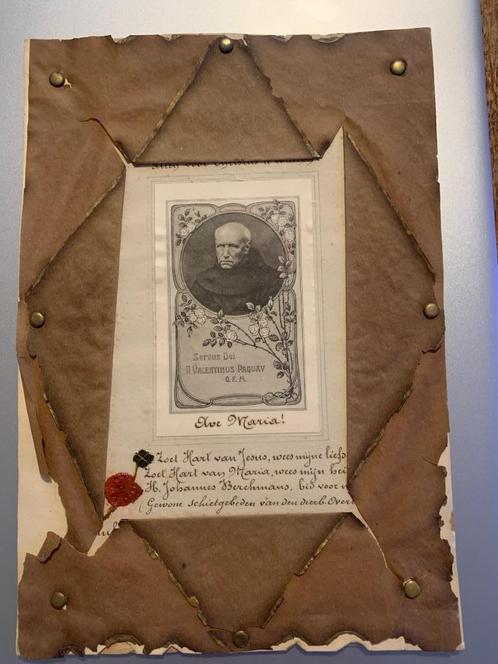 Servus Dei
P. VALENTINUS PAQUAY
O. F. M.
Ave Maria!
Zoet Hart van Jesus, wees mijne liefd
Zoet Hart van Maria, wees mijn hei
H. Johannes Berchmans, bid voor
(Gewone schietgebeden van den dierb. Over